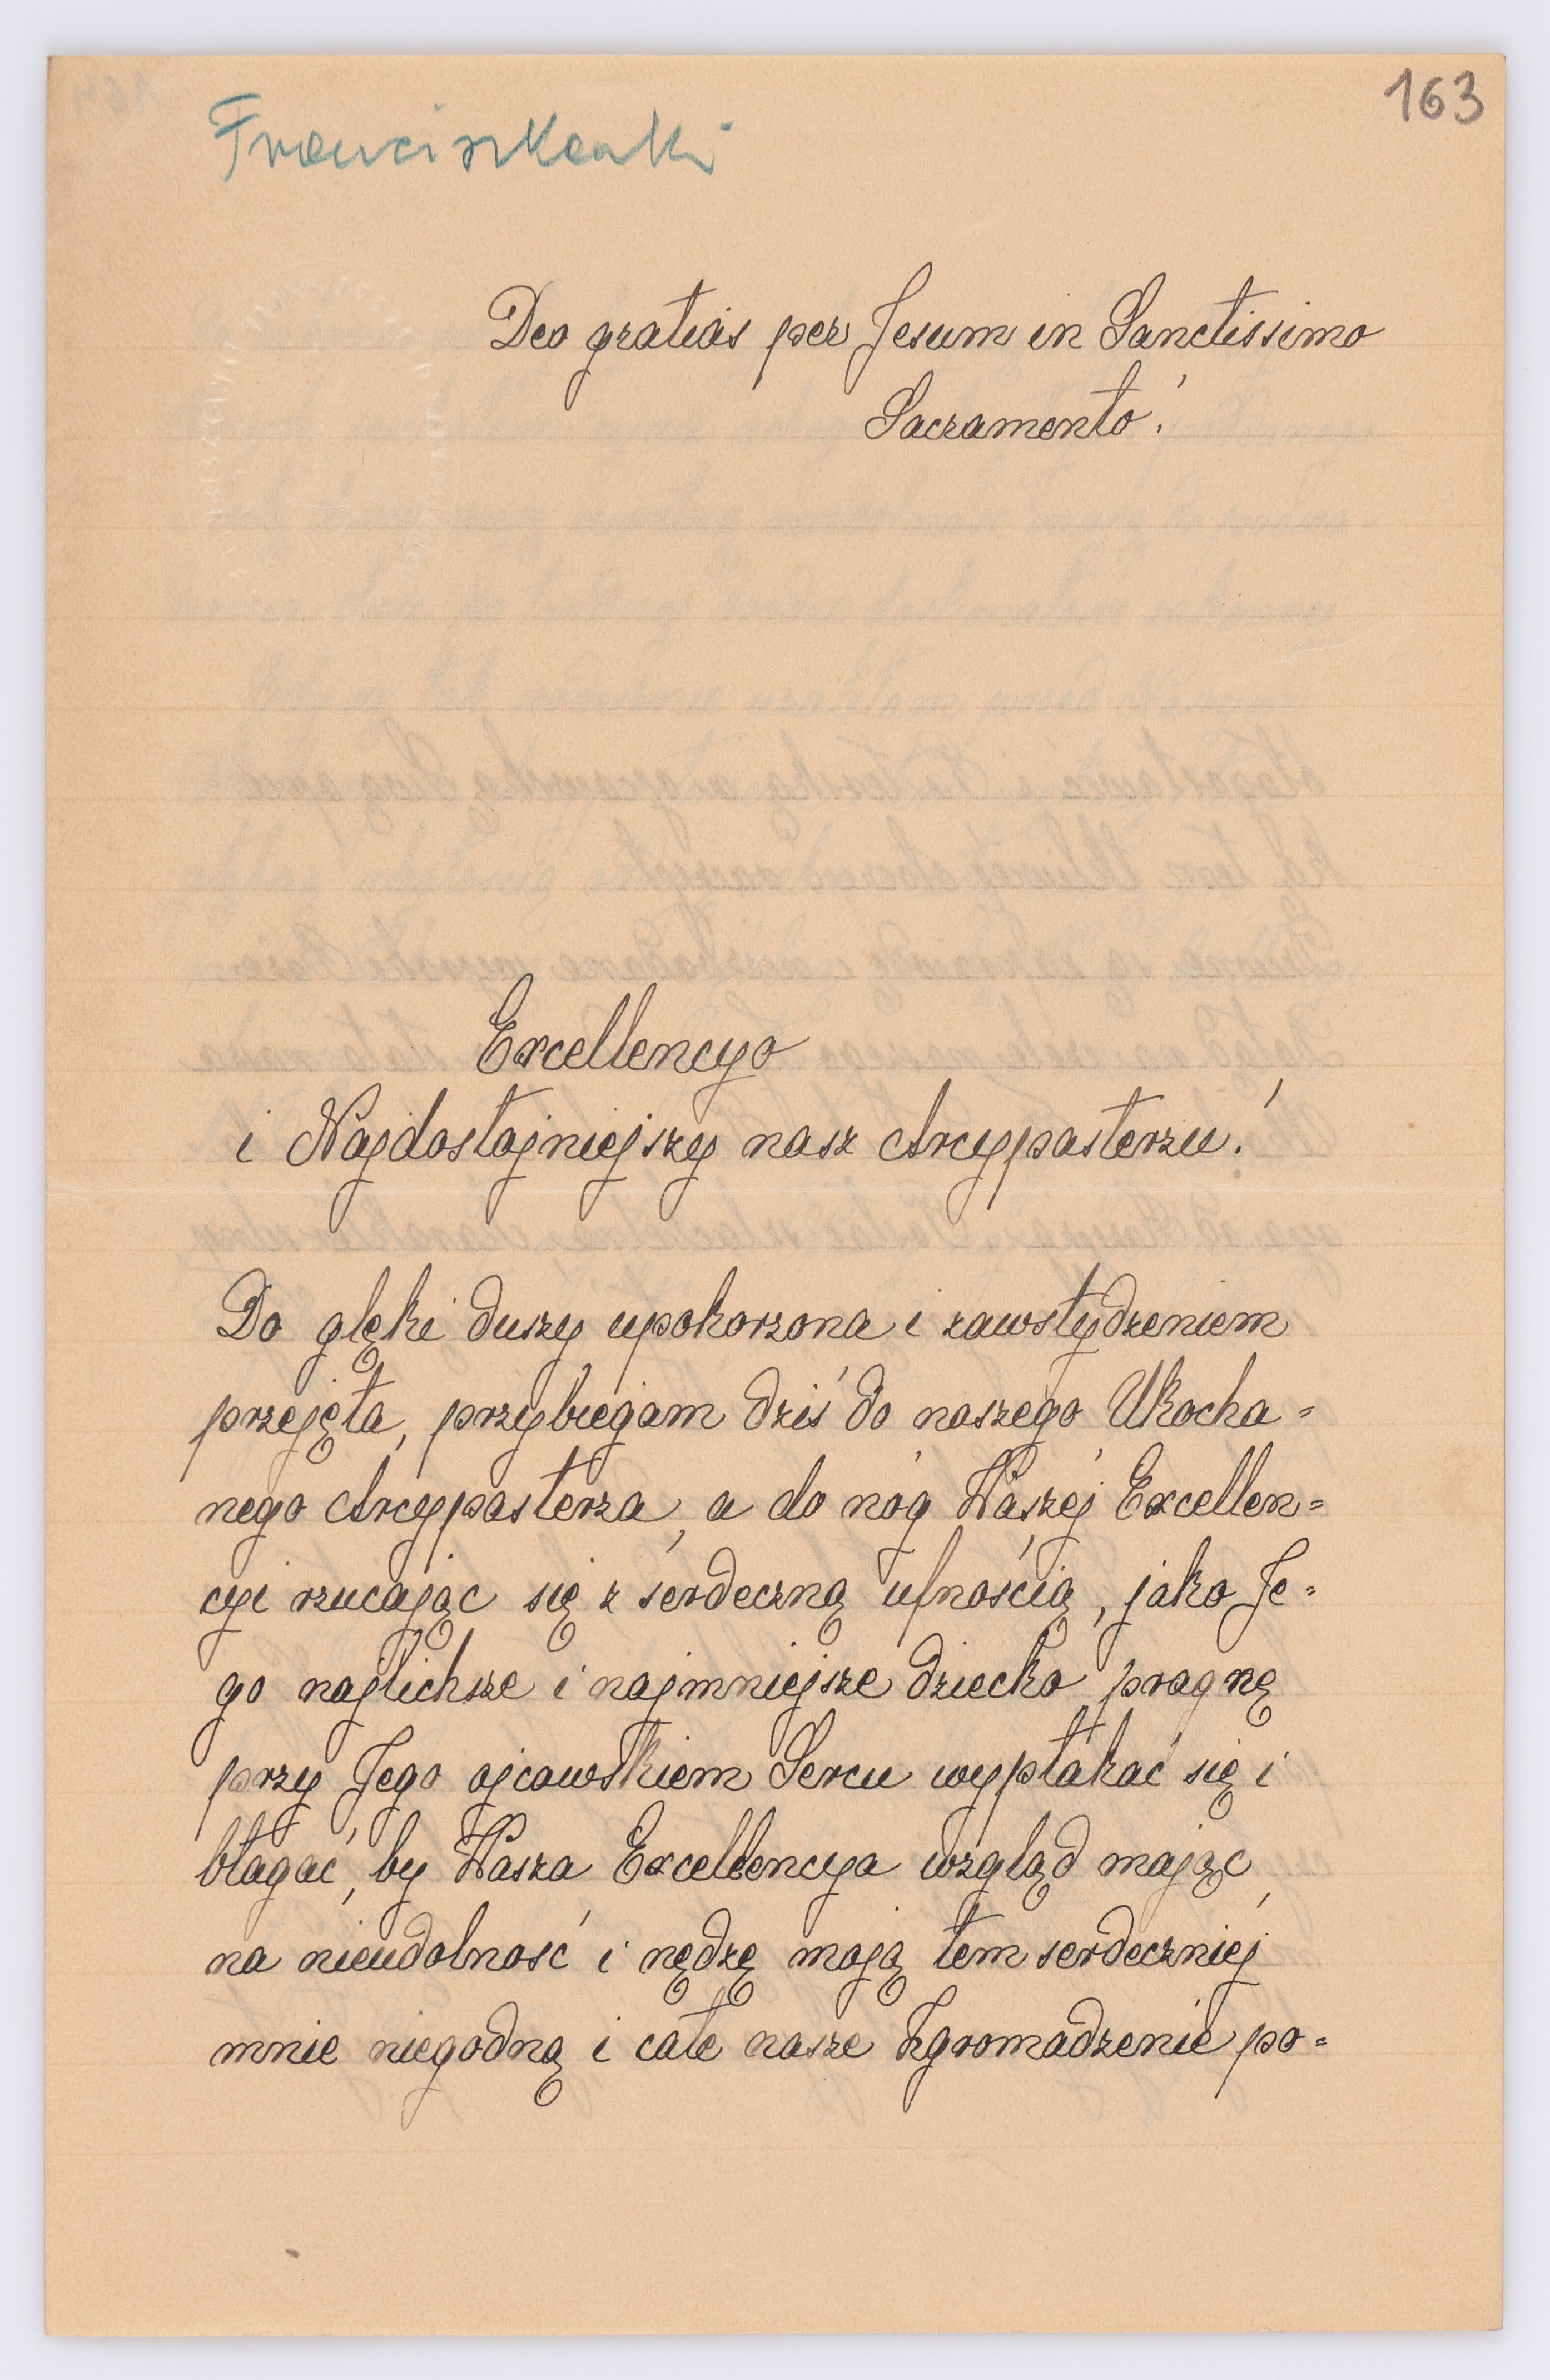 163
Franciszkanki
Deo gratias per Jesum in Sanctissimo
Sacramento!
Excellencyo
i Najdostojniejszy nasz Arcypasterzu!
Do głęki duszy upokorzona i zawstydzeniem
przejęta, przybiegam dziś do naszego Ukocha=
nego Arcypasterza, a do nóg Waszej Excellen=
cyi rzucając się z serdeczną ufnością, jako Je=
go najlichsze i najmniejsze dziecko pragnę
przy Jego ojcowskiem Sercu wypłakać się i
błagać, by Wasza Excellencya wzgląd mając
na nieudolność i nędzę moją tem serdeczniej
mnie niegodną i całe nasze Zgromadzenie po=